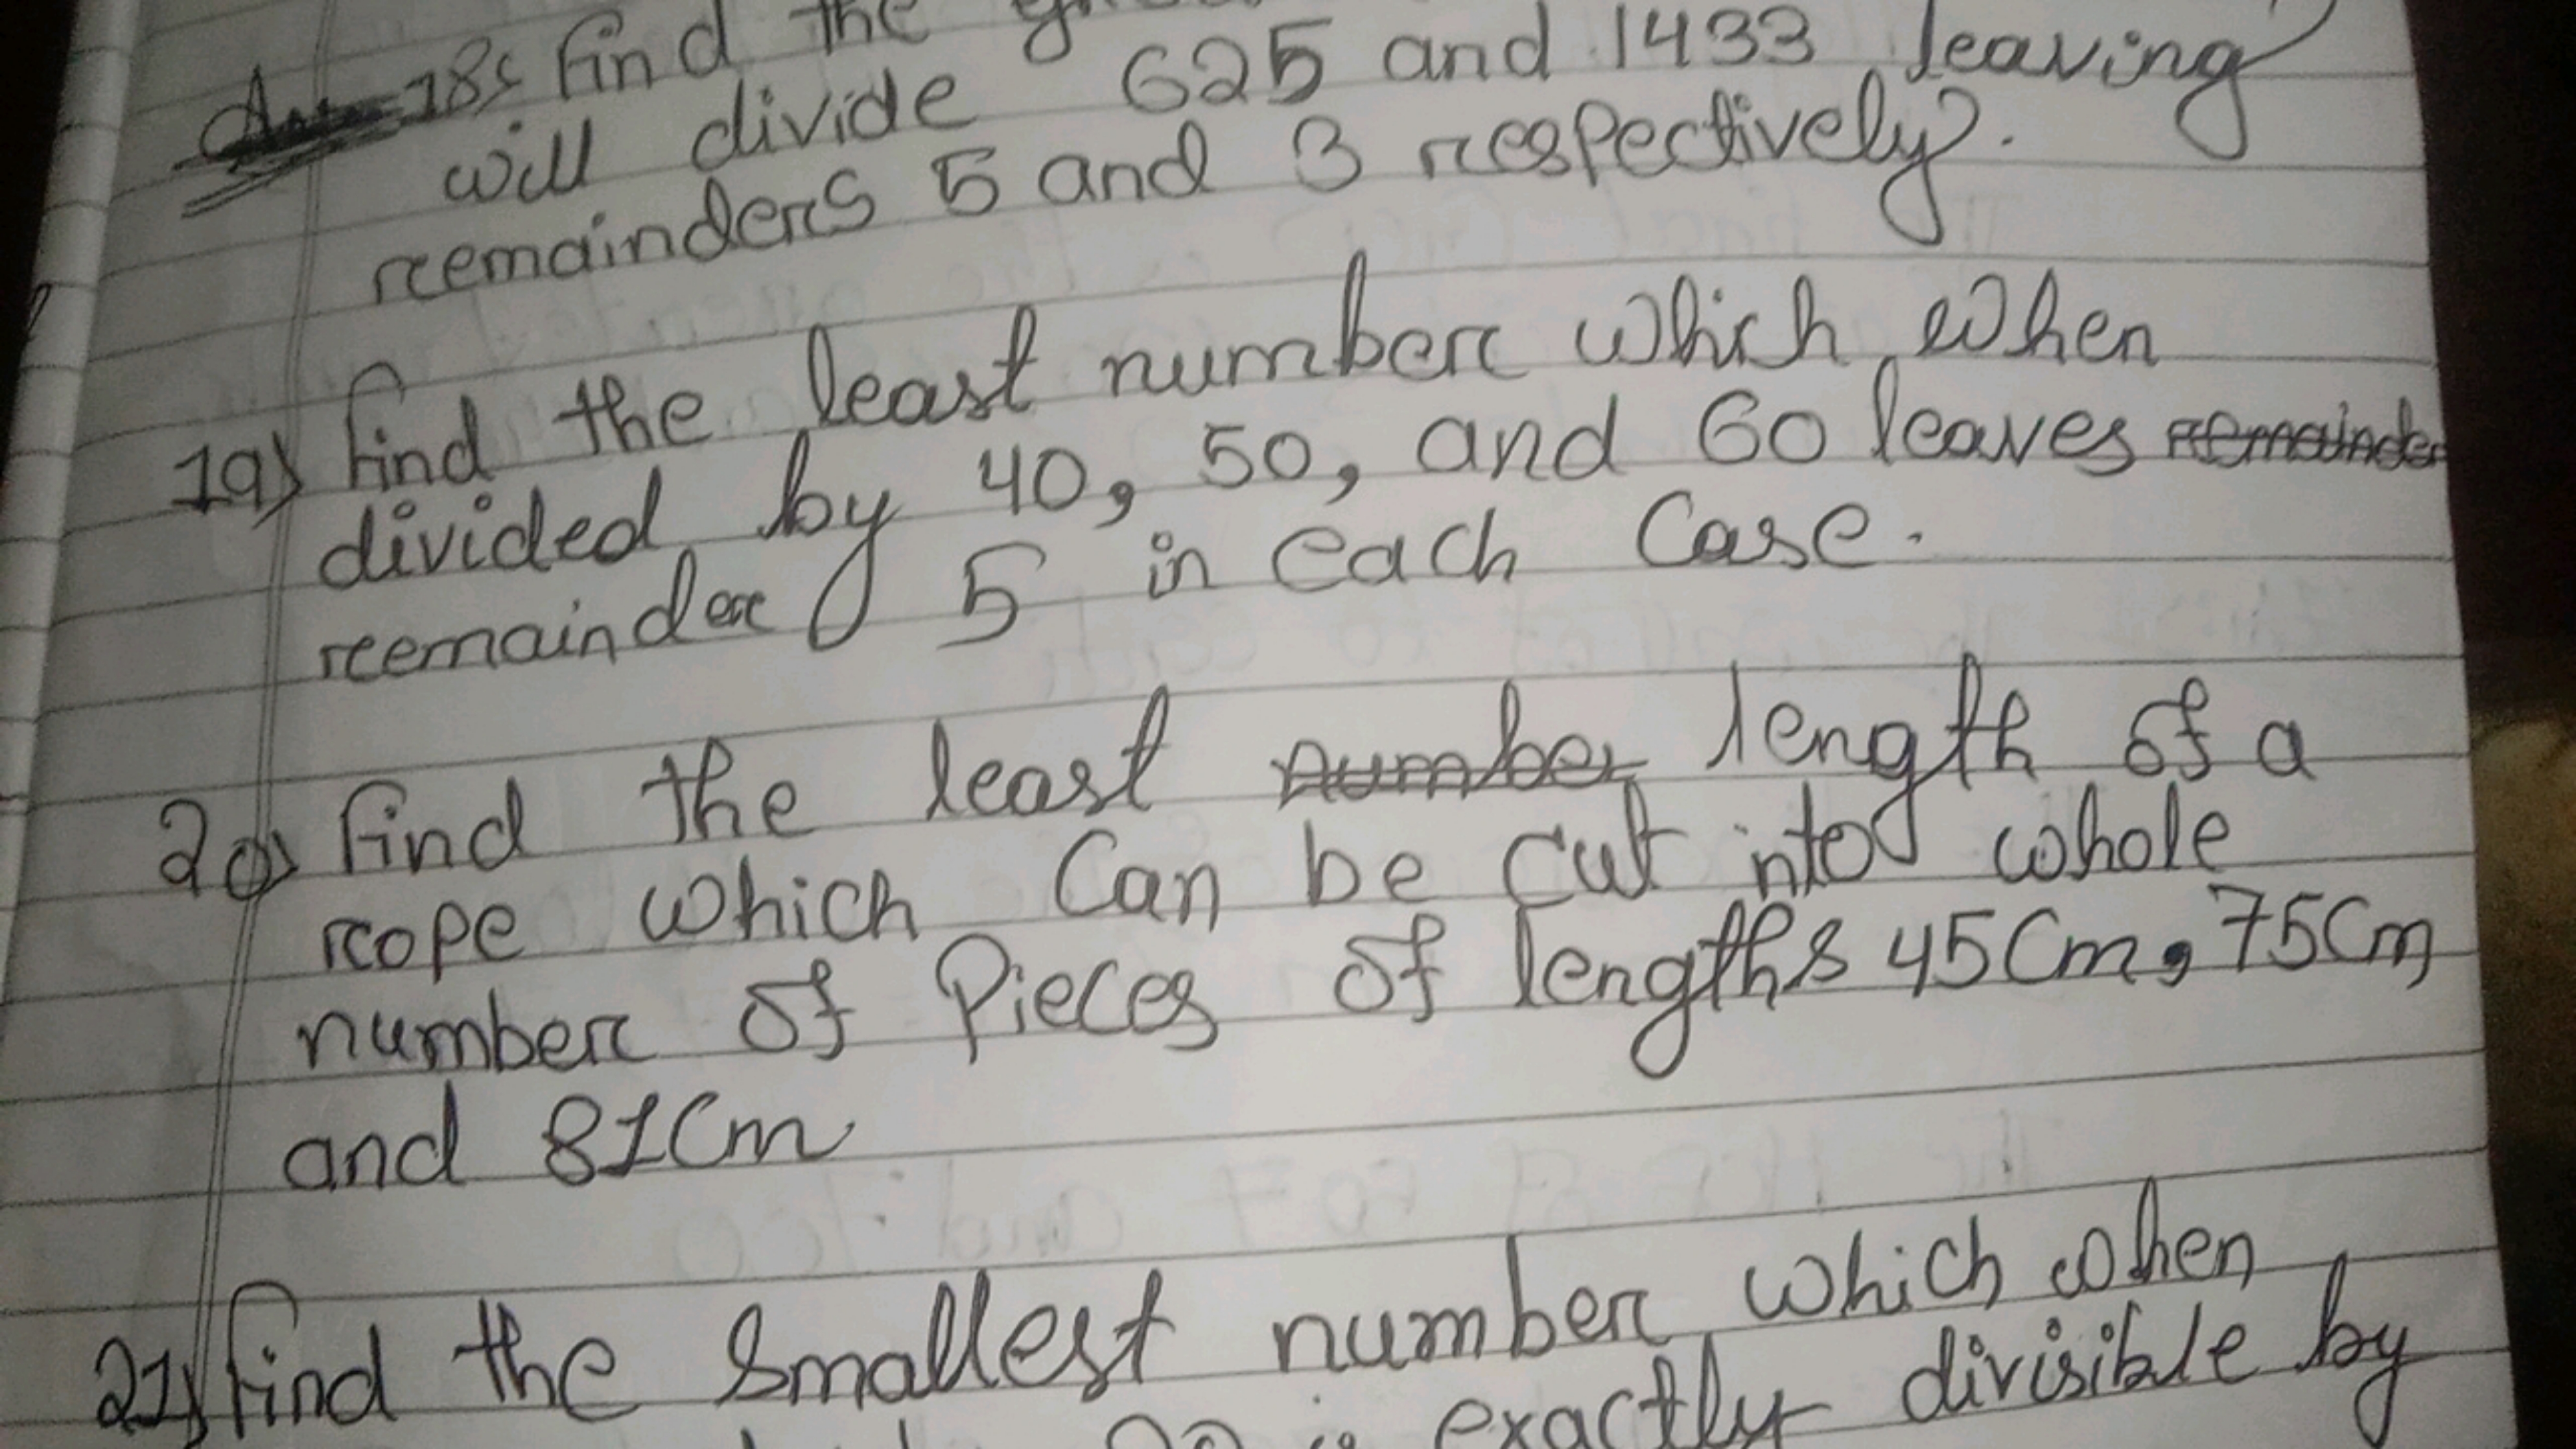 18) Find the
will divide 625 and 1433 leaving
remainders 5 and 3 respectively.
19) Find the least number which when
divided by 40, 50, and 60 leaves remainder
remainder 5 in each Case.
20) Find the least number length of a
rope which Can be cut into whole
number of Pieces of lengths 45Cm, 75Cm
and 81Cm
21) Find the smallest number which when
exactly divisible by